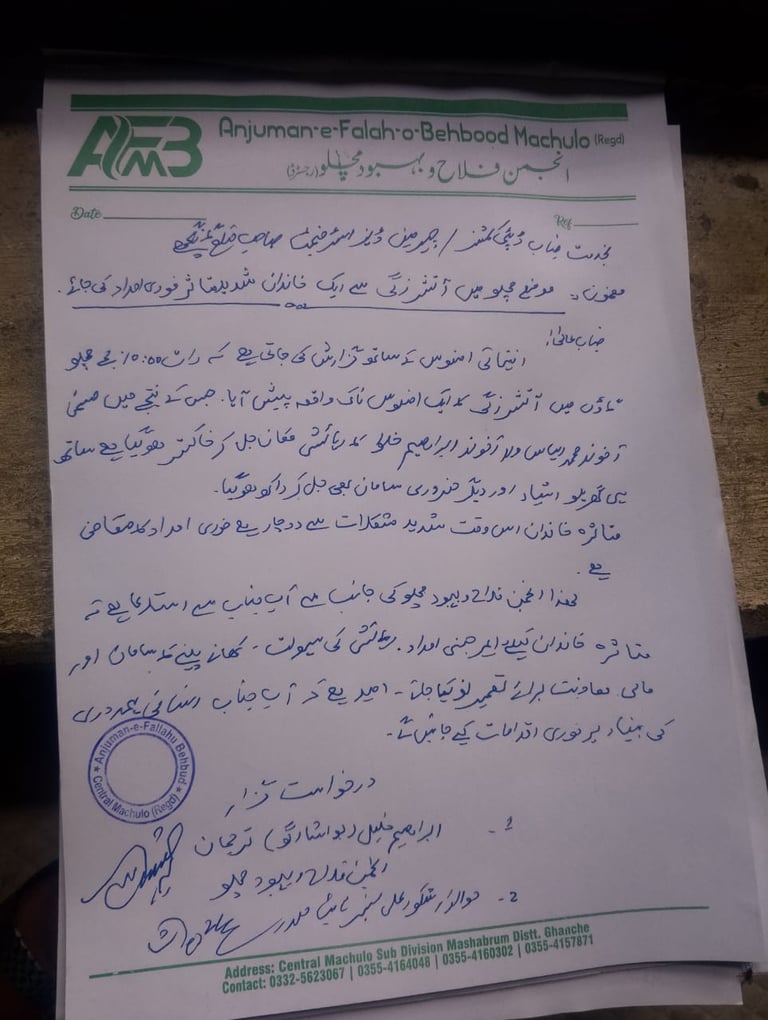 AFMB
Anjuman-e-Falah-o-Behbood Machulo (Regd)
انجمن فلاح و بہبود مچلو (رجسٹرڈ)
Date
Ref
بخدمت جناب ڈپٹی کمشنر / چیرمین ڈیزاسٹر منیجمنٹ صاحب ضلع گانچھے
مضمون: موضع مچلو میں آتش زدگی سے ایک خاندان شدید متاثر فوری امداد کی جائے۔
جناب عالی!
انتہائی افسوس کے ساتھ گزارش کی جاتی ہے کہ رات 10:00 بجے مچلو
ٹاؤن میں آتش زدگی کا ایک افسوس ناک واقعہ پیش آیا۔ جس کے نتیجے میں
آخوند محمد الیاس ولد آخوند ابراہیم کا رہائشی مکان جل کر خاکستر ہوگیا ہے ساتھ
ہی گھریلو اشیاء اور دیگر ضروری سامان بھی جل کر راکھ ہوگیا۔
متاثرہ خاندان اس وقت شدید مشکلات سے دوچار ہے فوری امداد کا متقاضی
ہے۔
لہذا انجمن فلاح و بہبود مچلو کی جانب سے آپ جناب سے استدعا ہے کہ
متاثرہ خاندان کیلئے ایمرجنسی امداد۔ رہائش کی سہولت۔ کھانے پینے کا سامان اور
مالی معاونت برائے تعمیر نو کیا جائے۔ امید ہے کہ آپ جناب انسانی ہمدردی
کی بنیاد پر فوری اقدامات کیے جائیں گے۔
Anjuman-e-Fallahu Behbud
Central Machulo (Regd)
درخواست گزار
1- ابراہیم خلیل ترجمان
انجمن فلاح و بہبود مچلو
2- حوالدار شکور علی
Address: Central Machulo Sub Division Mashabrum Distt. Ghanche
Contact: 0332-5623067 | 0355-4164048 | 0355-4160302 | 0355-4157871